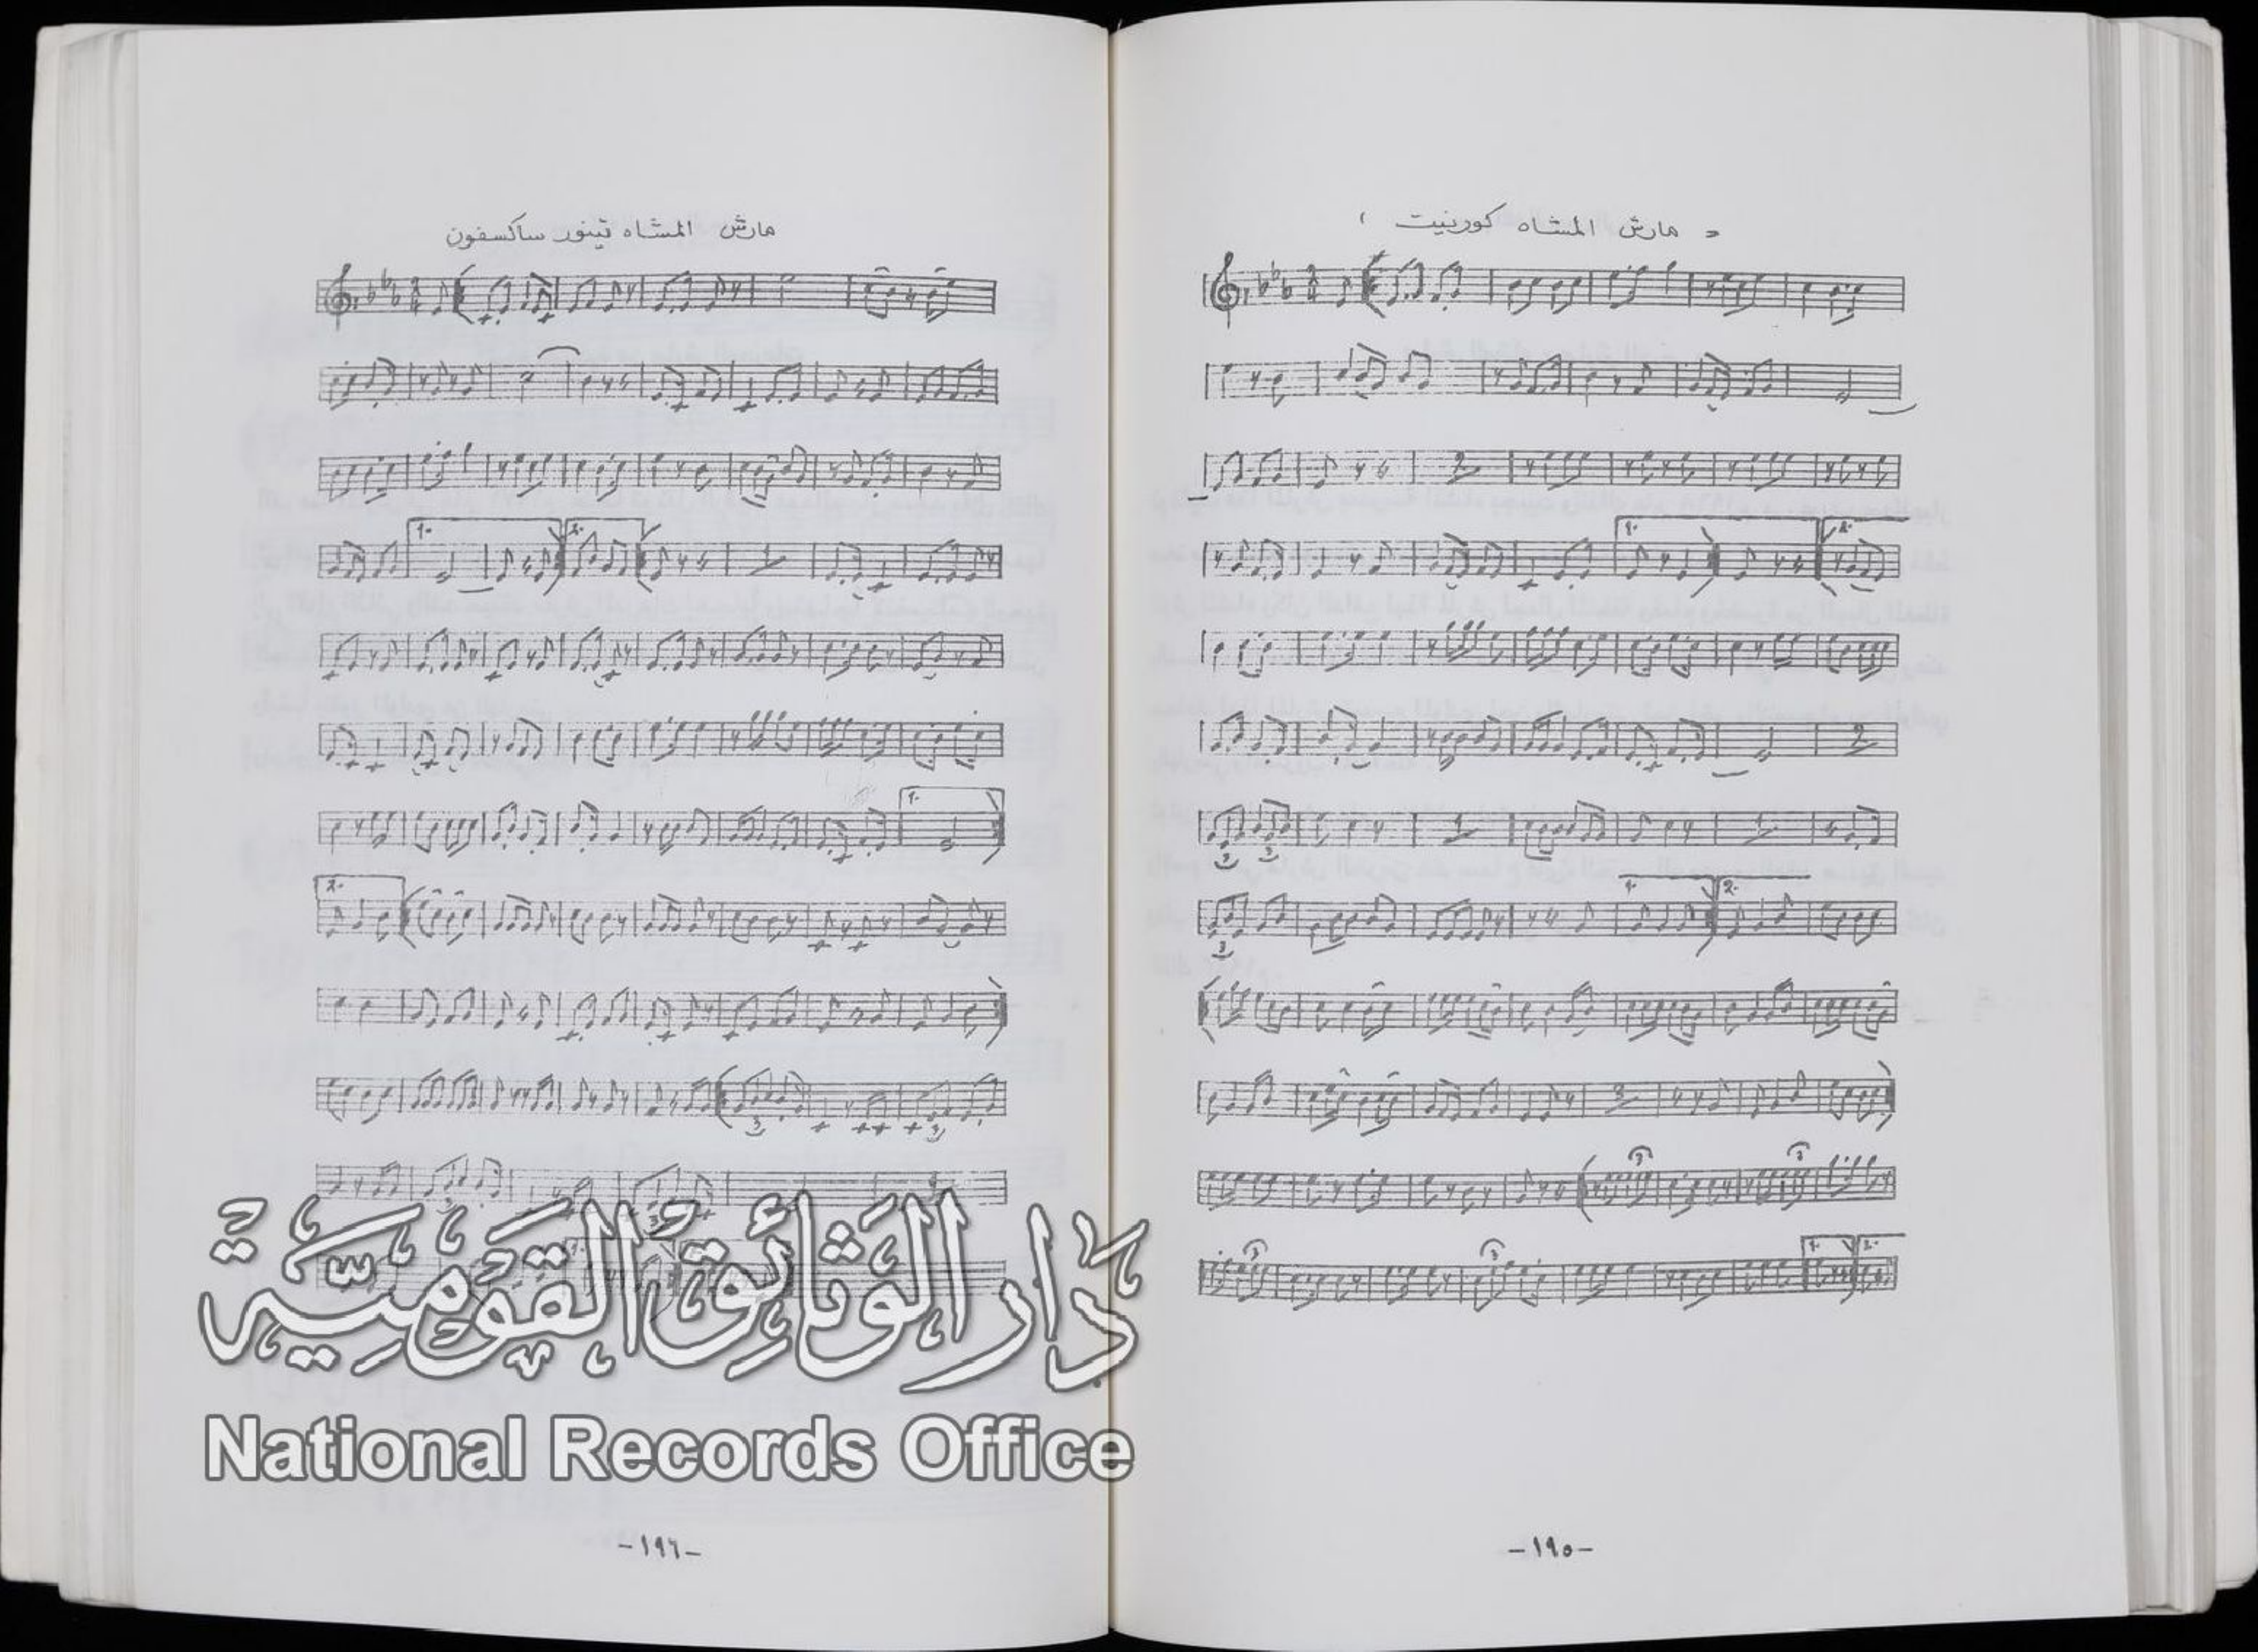 مارش المشاه كورنيت
-١٩٥-
مارش المشاه تينور ساكسفون
-١٩٦-
دَار الوَثائِق القَوميَّة
National Records Office